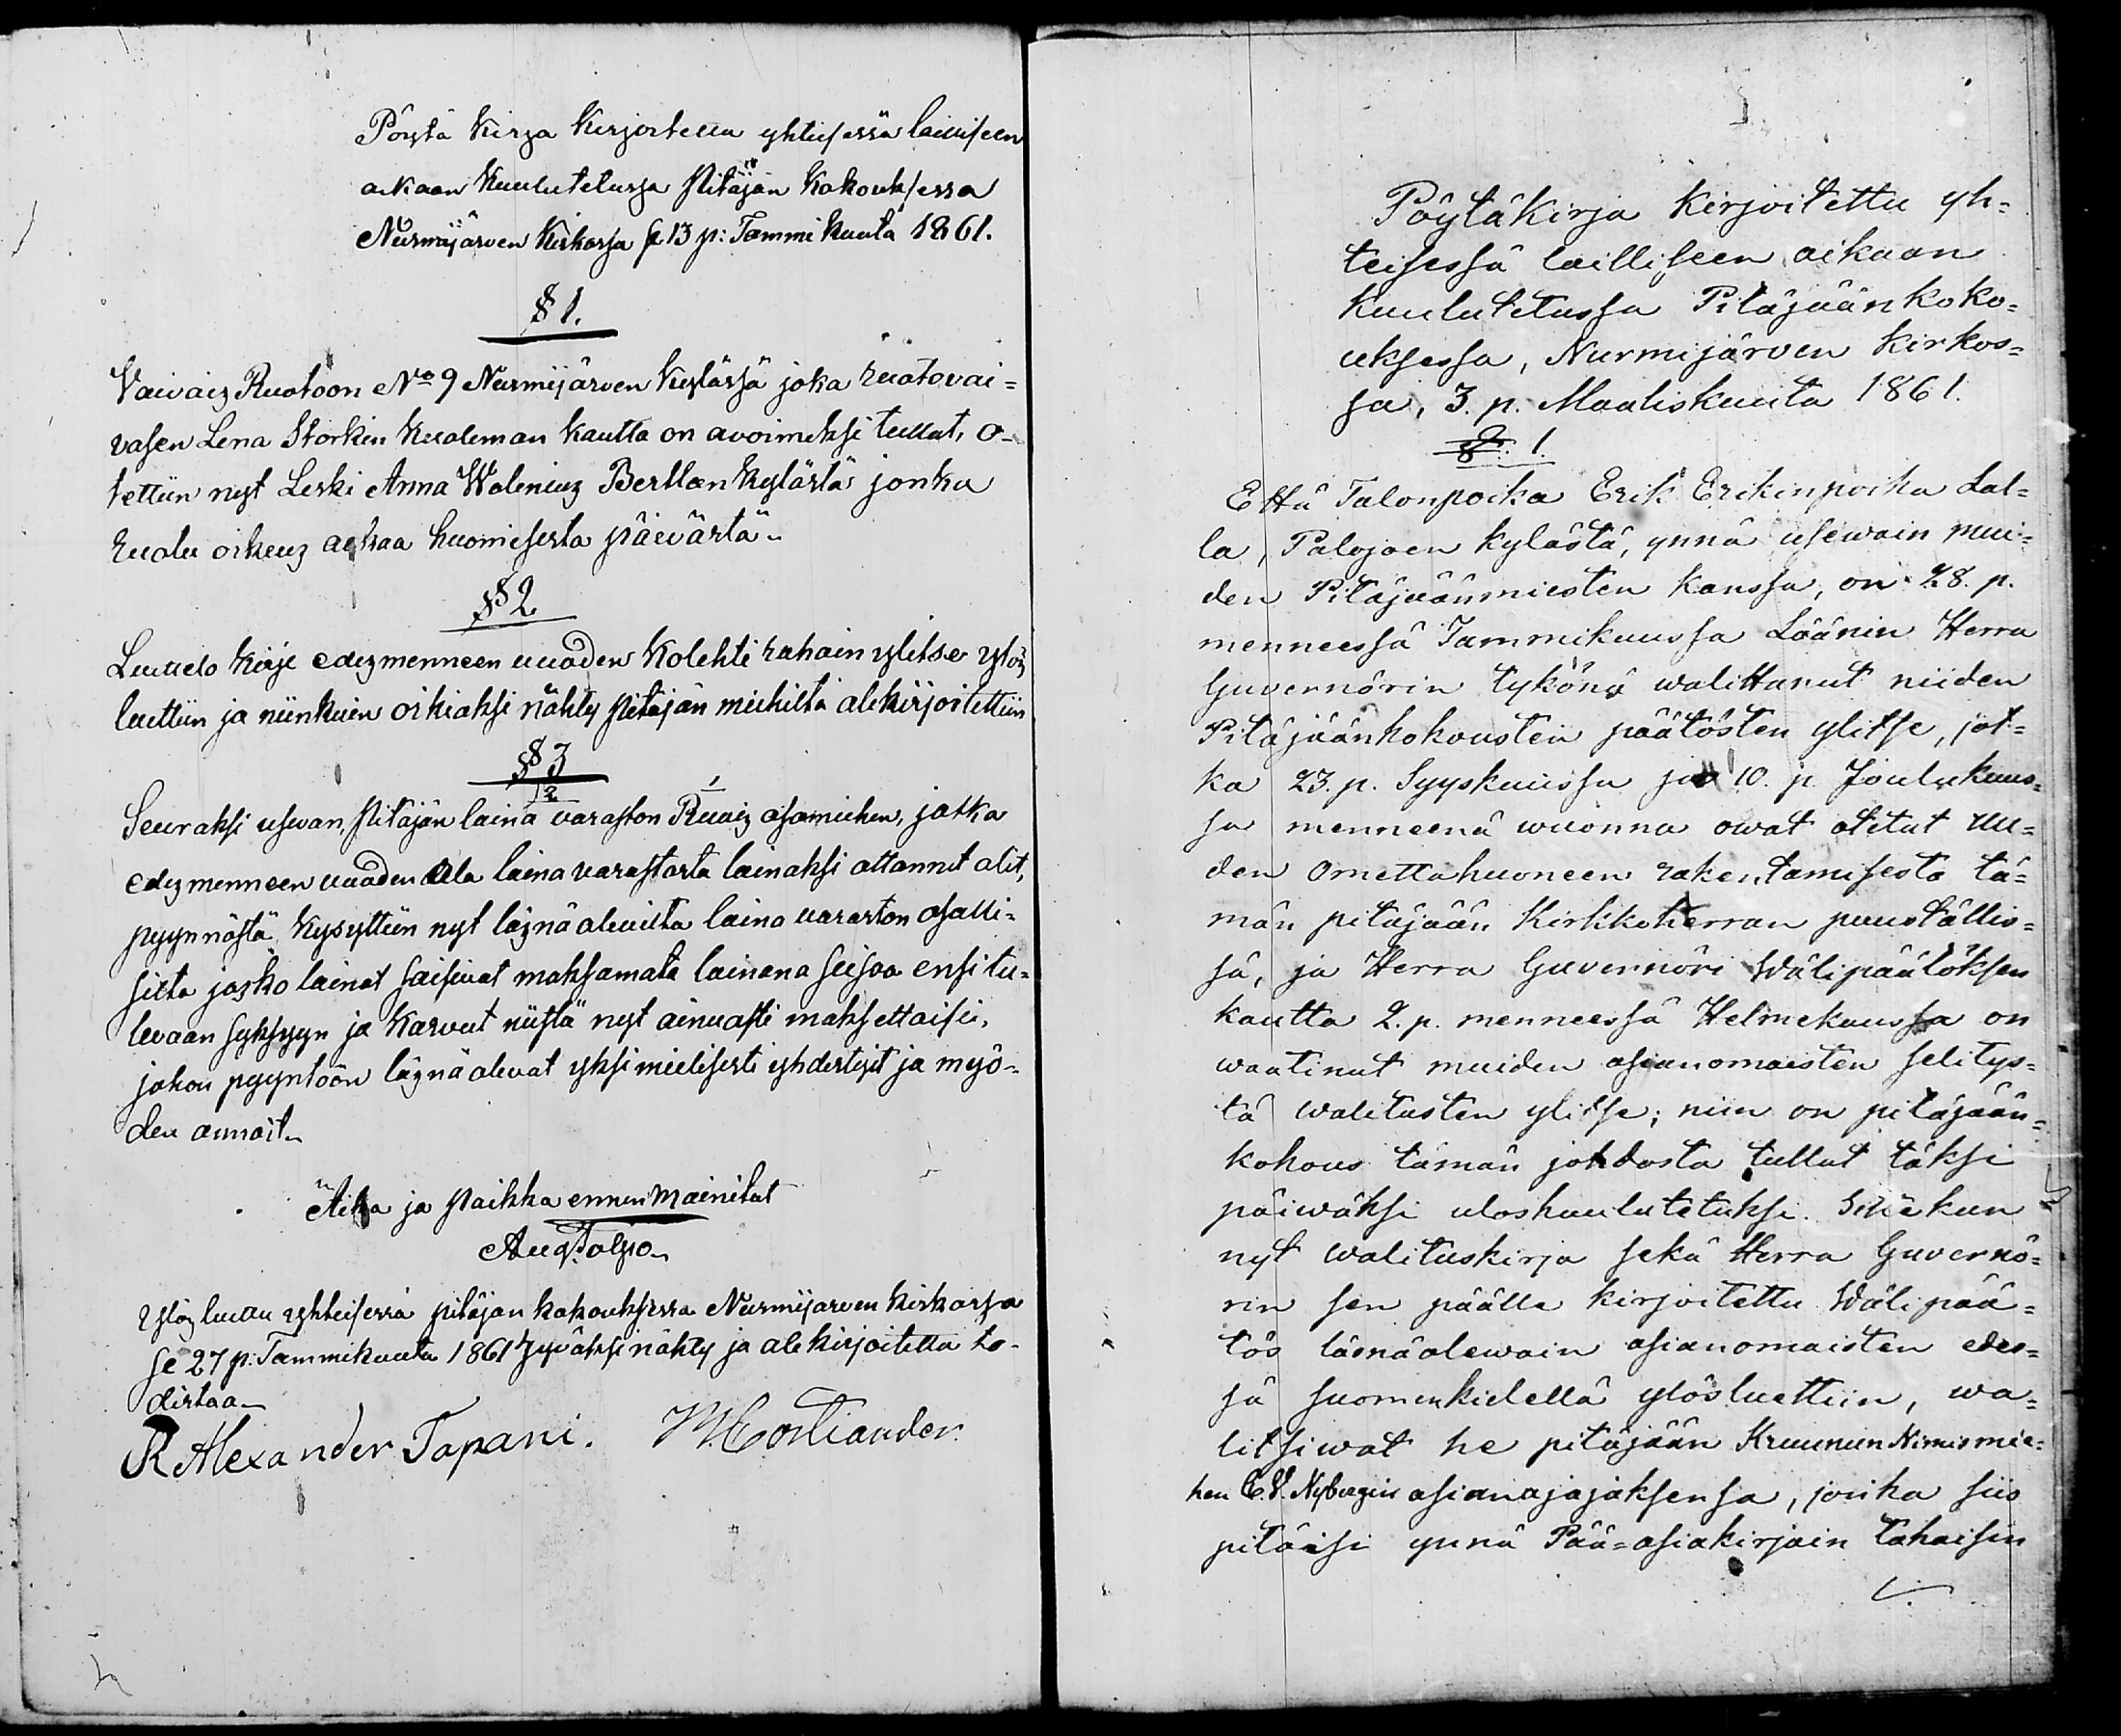 Pöytä Kirja Kirjoitettu yhteisessä lailliseen
aikaan Kuulutetussa Pitäjän Kokouksessa
Nurmijärven Kirkossa se 13 p: Tammi kuuta 1861.
§ 1.
Vaivais Ruotoon No 9 Nurmijärven Kylässä joka ruotovai=
vasen Lena Storkin kuoleman kautta on avoimeksi tullut, o-
tettiin nyt Leski Anna Walenius Perttlan Kylästä jonka
Ruotu oikeus alkaa huomisesta päivästä.
§ 2
Luuelo Kirje edesmenneen vuoden Kolehti rahain ylitse ylös
luettiin ja niinkuin oikiaksi nähty Pitäjän miehiltä alekirjoitettiin
§ 3
Seuraksi usevan, Pitäjän laina varaston Ruais osamiehen, jotka
edesmenneen vuoden ala laina varastosta lainaksi ottannet olit,
pyynnöstä kysyttiin nyt läsnä olevilta laina varaston osalli=
silta josko lainat saisivat maksamata lainana seisoa ensi tu=
levaan syksyyn ja Karvut niistä nyt ainoasti maksettaisi,
johon pyyntöön läsnä olevat yksimielisesti yhdestyit ja myö=
den annoit.
Aika ja Paikka ennen mainitut
Aug. Tolpo.
Ylös luettu yhteisessä pitäjän kokouksessa Nurmijärven Kirkossa
se 27 p: Tammikuuta 1861 hyväksi nähty ja alekirjoitettu to-
distaa.
R Alexander Tapani. M. Costiander.
Pöytäkirja Kirjoitettu yh=
teisessä lailliseen aikaan
kuulutetussa Pitäjäänkoko=
uksessa, Nurmijärven Kirkos=
sa, 3. p. Maaliskuuta 1861.
§. 1.
Että Talonpoika Erik Erikinpoika Lal=
la, Palojoen kylästä, ynnä usewain mui=
den Pitäjäänmiesten kanssa, on 28. p.
menneessä Tammikuussa Läänin Herra
Guvernörin tykönä walittanut niiden
Pitäjäänkokousten päätösten ylitse, jot=
ka 23. p. Syyskuussa ja 10. p. Joulukuus=
sa menneenä wuonna owat otetut uu=
den Omettahuoneen rakentamisesta tä=
män pitäjään Kirkkoherran puuställis=
sä, ja Herra Guvernöri Wälipäätöksen
kautta 2. p. menneessä Helmekuussa on
waatinut muiden asianomaisten selitys=
tä walitusten ylitse; niin on pitäjään=
kokous tämän johdosta tullut täksi
päiwäksi uloskuulutetuksi. Sitte kun
nyt walituskirja sekä Herra Guvernö=
rin sen päälle kirjoitettu Wälipää=
tös läsnäolewain asianomaisten edes=
sä suomenkielellä ylösluettiin, wa=
litsiwat he pitäjään Kruunun Nimismie=
hen C. V. Nybergin asianajajaksensa, jonka siis
pitäisi ynnä Pää=asiakirjain takaisin